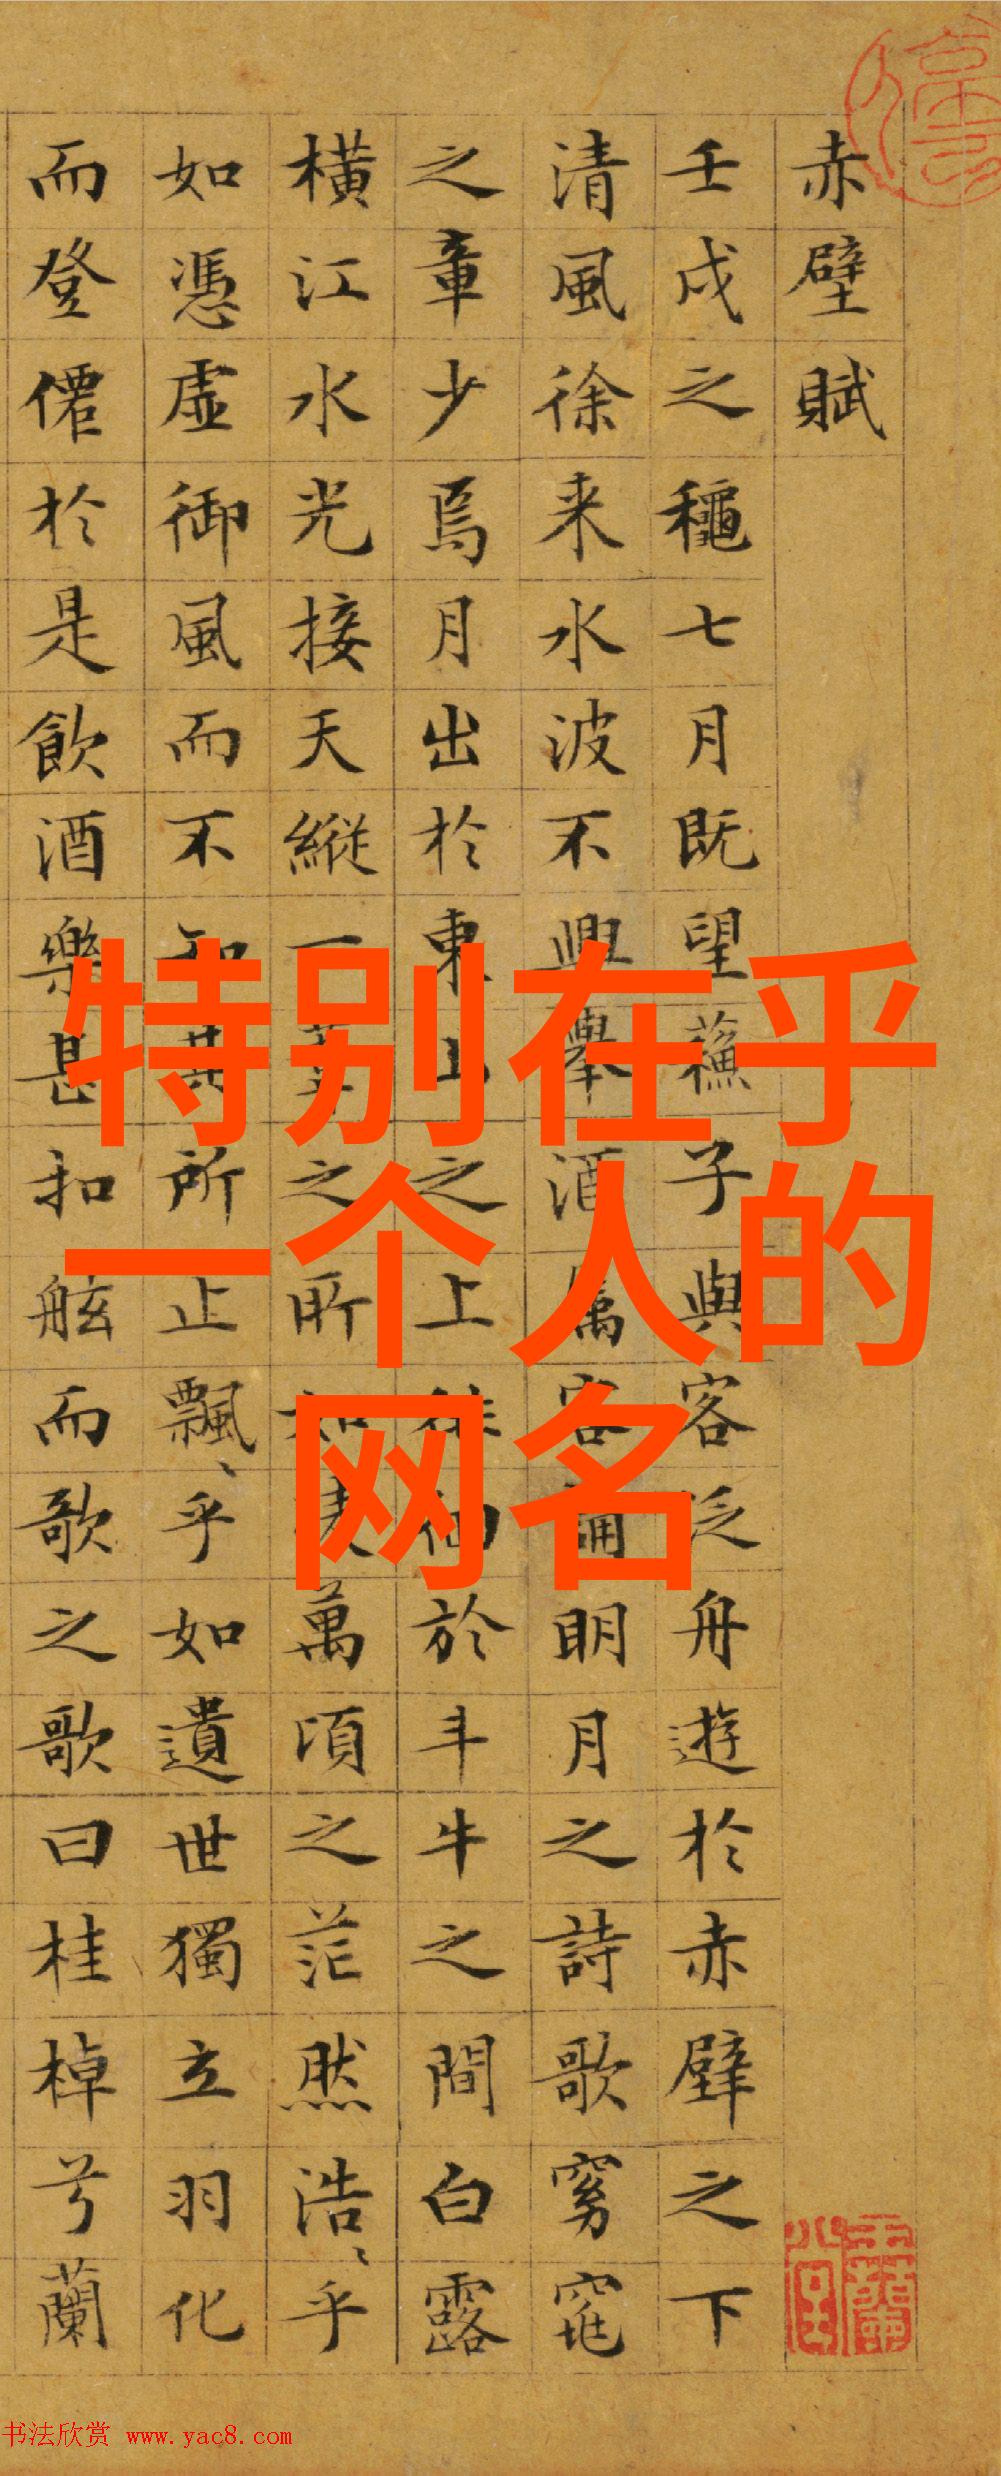 特别在乎
一个人的
网名
赤壁賦
壬戌之穐七月既望蘓子與客泛舟遊於赤壁之下
清風徐来水波不興舉酒属客誦明月之詩歌窈窕
之章少焉月出於東山之上徘徊於斗牛之間白露
横江水光接天縱一葦之所如凌萬頃之茫然浩〻乎
如憑虛御風而不知其所止飄〻乎如遺世獨立羽化
而登僊於是飲酒樂甚扣舷而歌之歌曰桂棹兮蘭
书法欣赏 www.yac8.com